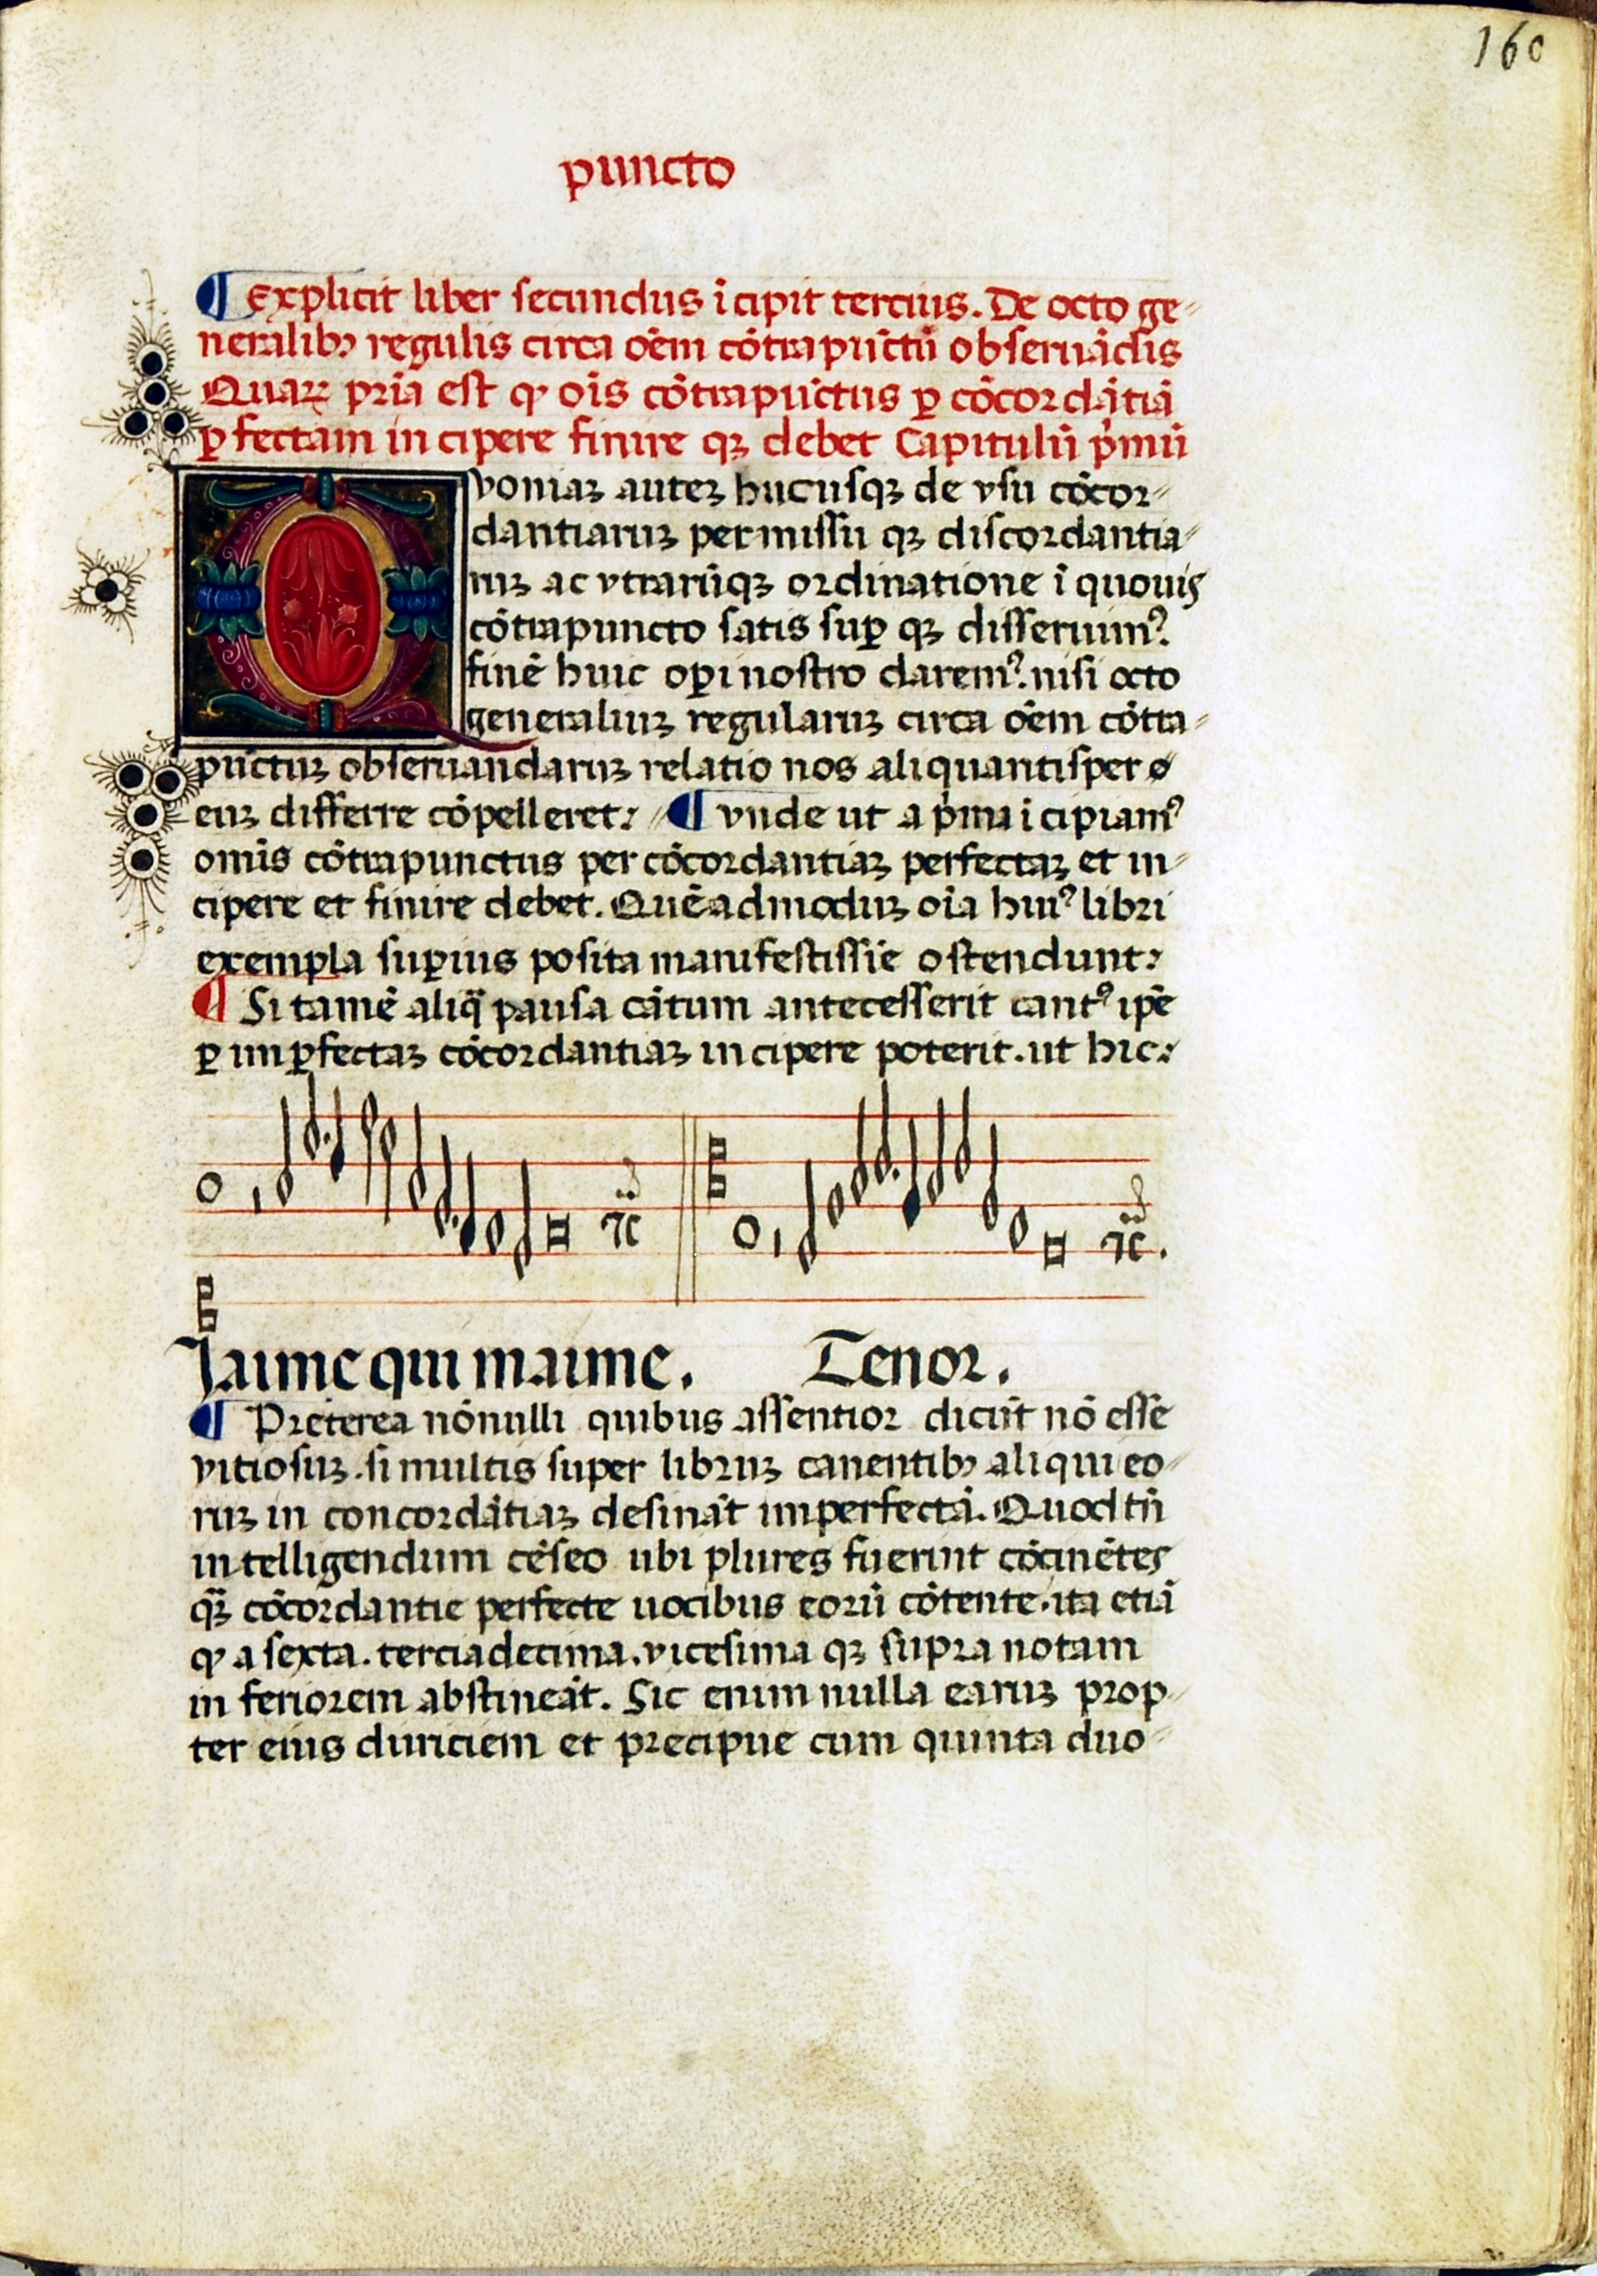 160
puncto
¶ Explicit liber secundus īcipit tercius. De octo ge-
neralibꝫ regulis circa oēm cōtrapūctū obseruādis
Quaꝝ pria est ꝙ oīs cōtrapūctus ꝑ cōcordātiā
ꝑfectam incipere finire qꝫ debet Capitulū pͥmū
Qvoniaꝫ auteꝫ hucusqꝫ de vsu cōcor-
dantiaruꝫ permissu qꝫ discordantia-
ruꝫ ac vtrarūqꝫ ordinatione ī quouis
cōtrapuncto satis suꝑ qꝫ disseruimꝰ.
finē huic oꝑi nostro daremꝰ. nisi octo
generaliuꝫ regularuꝫ circa oēm cōtra-
pūctuꝫ obseruandaruꝫ relatio nos aliquantisper
euꝫ differre cōpelleret: ¶ vnde ut a pͥma icipiamꝰ
omīs cōtrapunctus per cōcordantiaꝫ perfectaꝫ et in-
cipere et finire debet. Quēadmoduꝫ oīa huiꝰ libri
exempla suꝑius posita manifestissīe ostendunt:
¶ Si tamē aliqᷓ pausa cātum antecesserit cantꝰ ip̄e
ꝑ imꝑfectaꝫ cōcordantiaꝫ incipere poterit. ut hic:
⁊c ⁊c.
Jaime qui maime. Tenor.
¶ Preterea nōnulli quibus assentior dicūt nō esse
vitiosuꝫ. si multis super libruꝫ canentibꝫ aliqui eo-
ruꝫ in concordātiaꝫ desināt imperfectā. Quod tn̄
intelligendum cēseo ubi plures fuerint cōcinētes
qᷓꝫ cōcordantie perfecte uocibus eorū cōtente. ita etiā
ꝙ a sexta. terciadecima. vicesima qꝫ supra notam
inferiorem abstineāt. Sic enim nulla earuꝫ prop-
ter eius duriciem et precipue cum quinta duo-